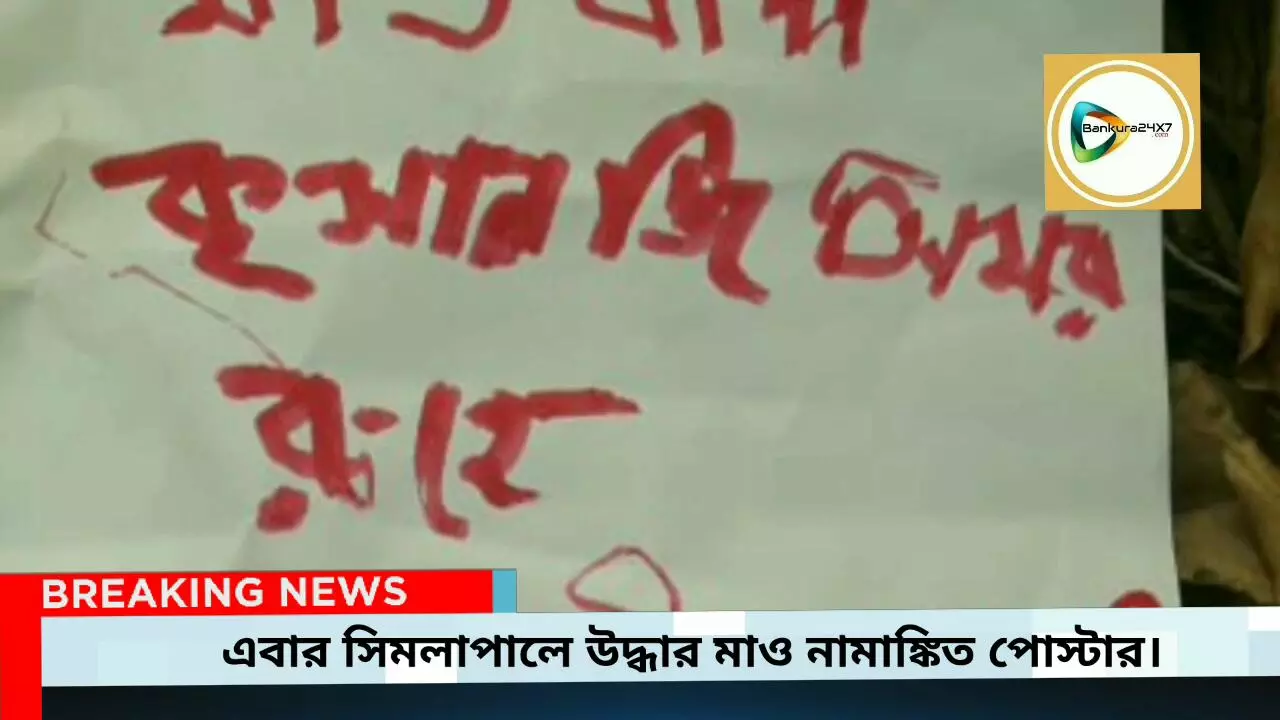 কৃসানজি অমর
রহে
Bankura24X7
.com
BREAKING NEWS
এবার সিমলাপালে উদ্ধার মাও নামাঙ্কিত পোস্টার।